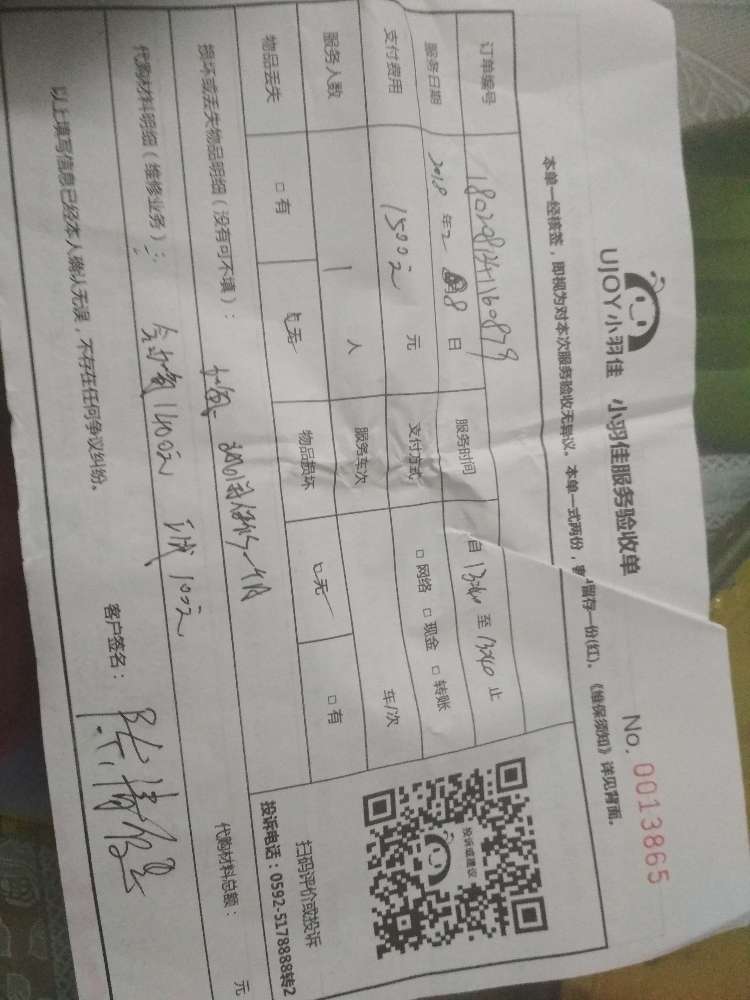 UJOY小羽佳 小羽佳服务验收单
No. 0013865
本单一经核签，即视为对本次服务验收无异议。本单一式两份，客户留存一份(红)。《维保须知》详见背面。
订单编号
服务日期 2018 年 2 月 8 日 服务时间 自 至 止
支付费用 1500元 元 支付方式 □ 网络 □ 现金 □ 转账
服务人数 1 人 服务车次 车/次
物品丢失 □ 有 □ 无 物品损坏 □ 无 □ 有
损坏或丢失物品明细（没有可不填）：
代购材料明细（维修业务）： 1400元 100元
代购材料总额： 元
以上填写信息已经本人确认无误，不存在任何争议纠纷。
客户签名：
投诉或建议
扫码评价或投诉
投诉电话：0592-5178888转2